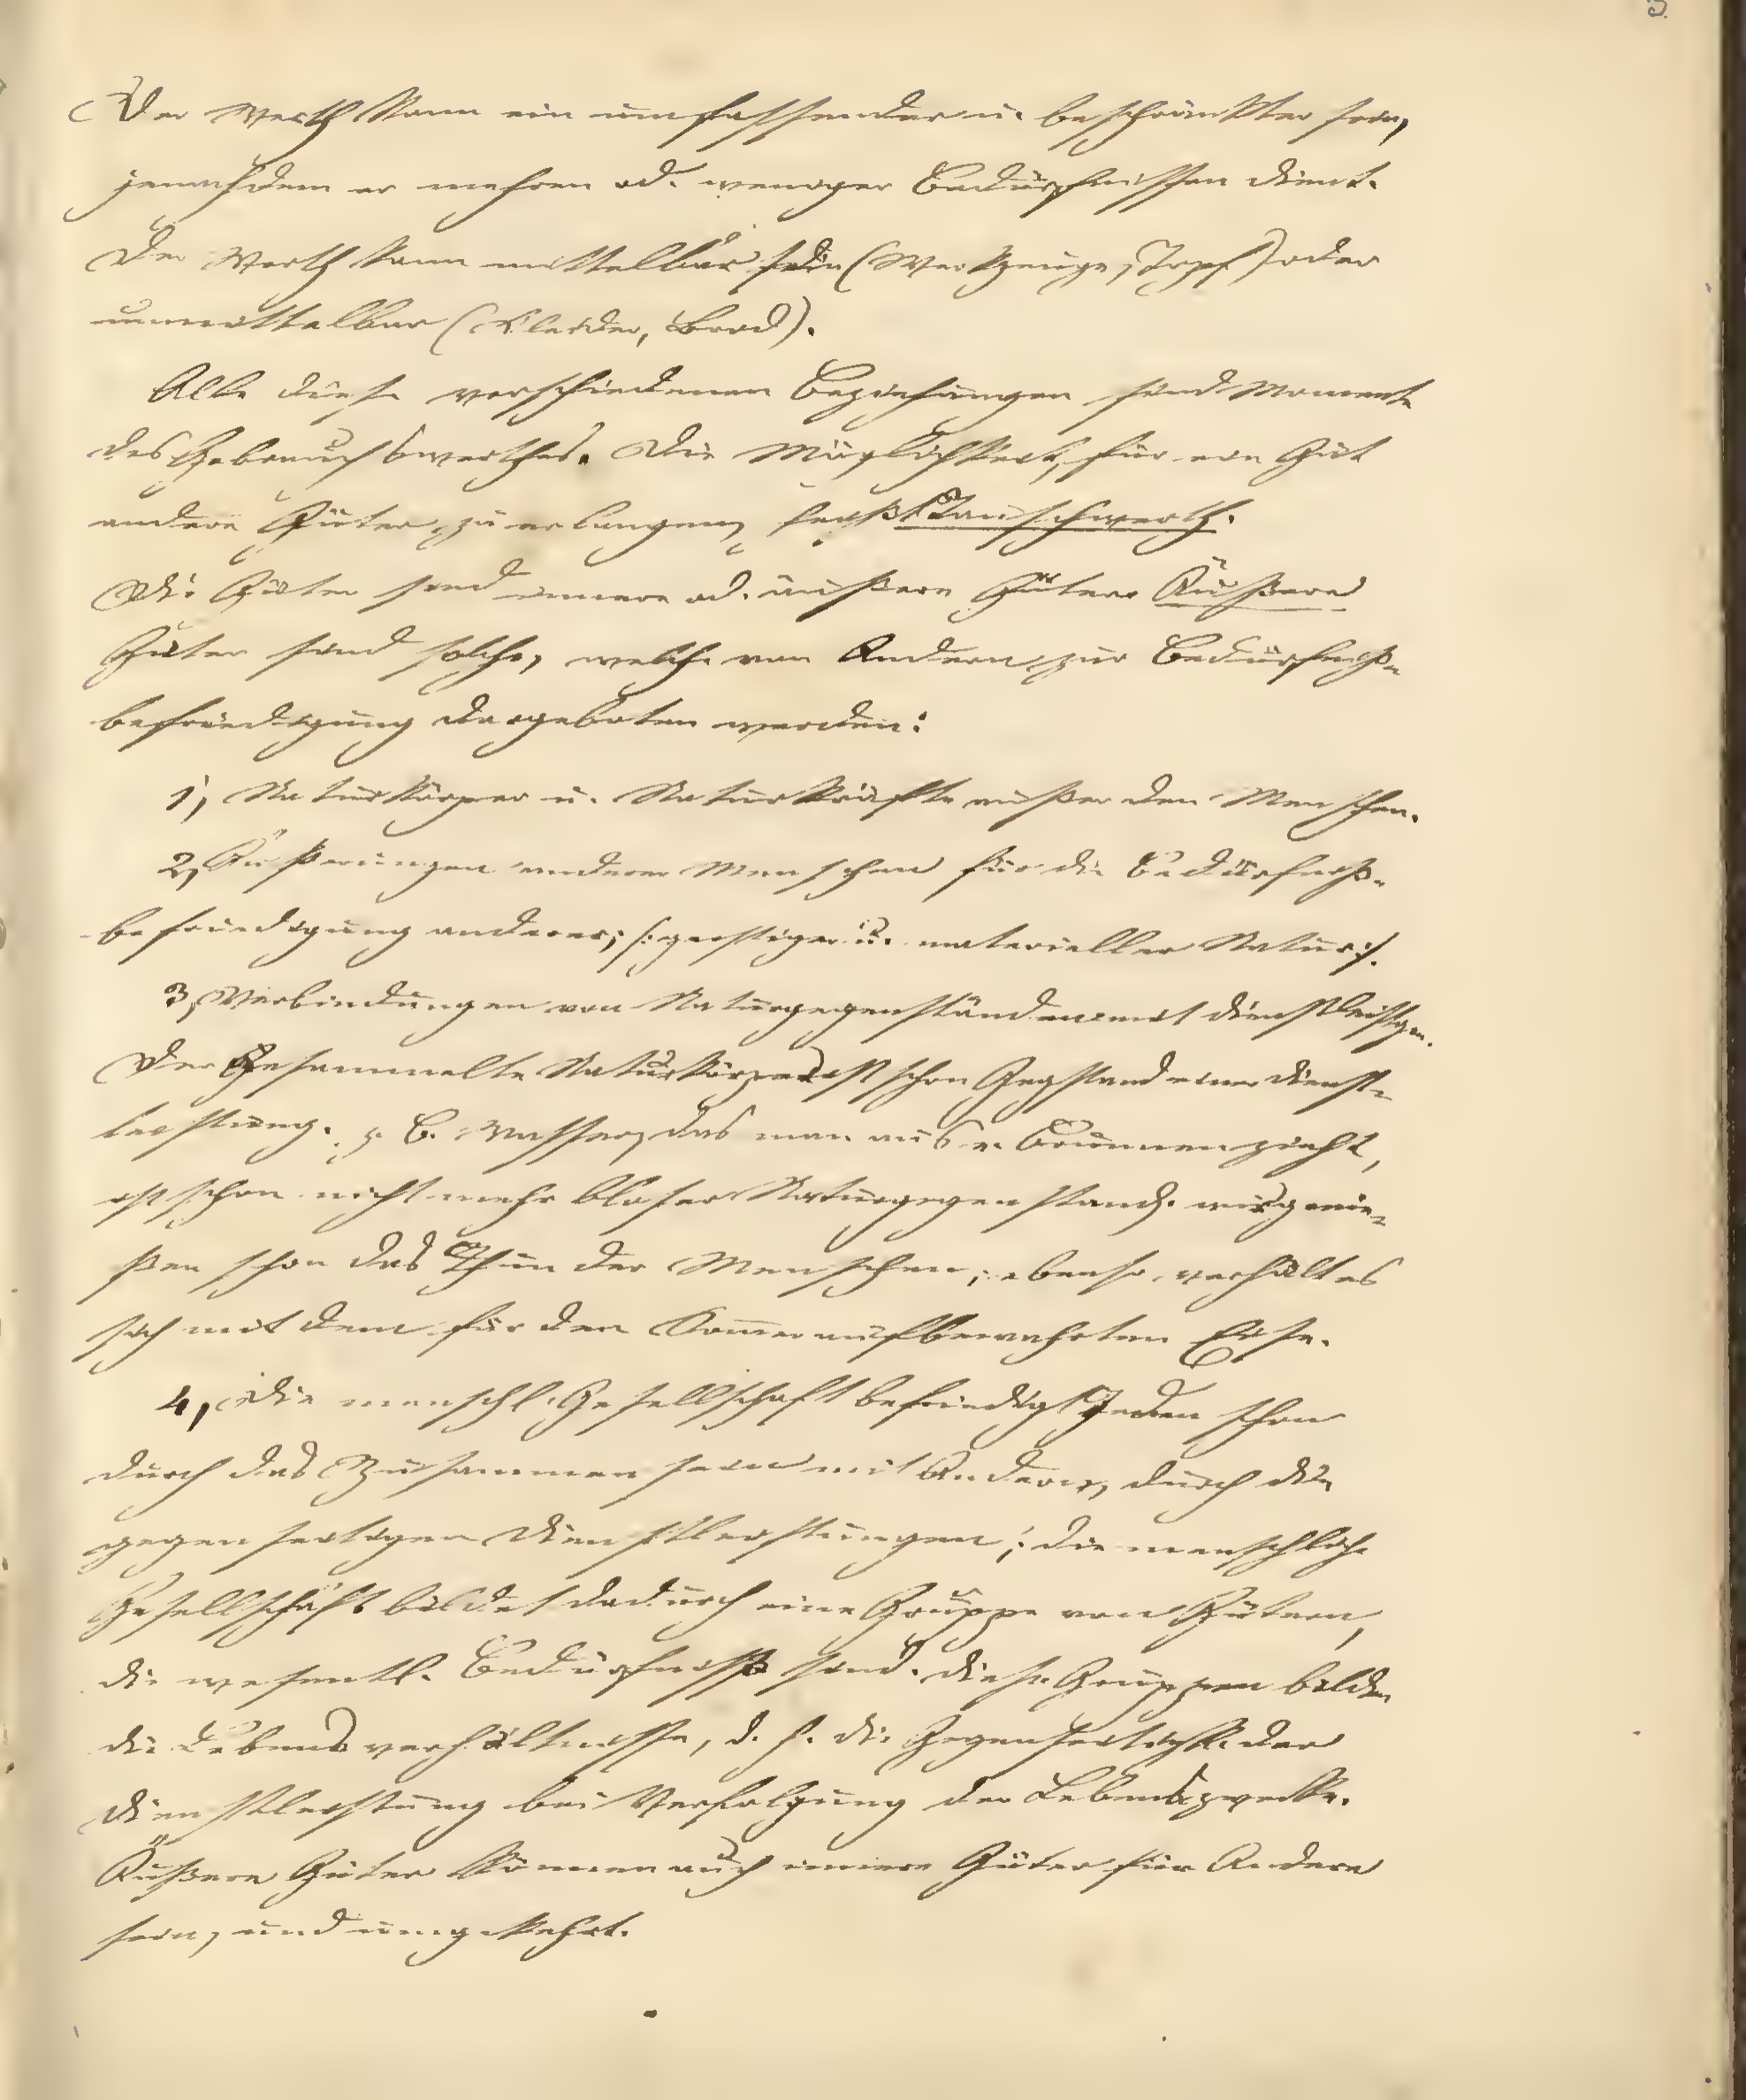 3
Der Werth kann ein umfassender u. beschränkter sein,
jenachdem er mehren od. weniger Bedürfnissen dient.
Der Werth kann mittelbar sein (Werkzeuge, Topf) oder
unmittelbar (Kleider, Brod).
Alle diese verschiedenen Beziehungen sind Momente
des Gebrauchswerthes. Die Möglichkeit, für ein Gut
andere Güter zu erlangen, heißt Tauschwerth.
Die Güter sind innere od. äußere Güter. Äußere
Güter sind solche, welche von Andern zur Bedürfniß-
befriedigung dargeboten werden:
1, Naturkörper u. Naturkräfte außer den Menschen.
2, Äußerungen anderer Menschen für die Bedürfniß-
befriedigung anderer, /: geistiger u. materieller Natur :/.
3, Verbindungen von Naturgegenständen mit Dienstleistgen.
Der Gesammelte Naturkörper ist schon Gegstand einer Dienst-
leistung. z. B. Wasser, das man aus e. Brunnen zieht,
ist schon nicht mehr bloser Naturgegenstand. wir genie-
ßen schon das Thun der Menschen; ebenso verhält es
sich mit dem für den Somer aufbewahrten Eise.
4, Die menschl. Gesellschaft befriedigt Jeden schon
durch das Zusammensein mit Andern, durch die
gegenseitigen Dienstleistungen; die menschliche
Gesellschaft bildet dadurch eine Gruppe von Gütern,
die wesentl. Bedürfniß sind. Diese Gruppen bilden
die Lebensverhältnisse, d. h. die Gegenseitigk. der
Dienstleistung bei Verfolgung der Lebenszwecke.
Äußere Güter können auch innere Güter für Andere
sein, und umgekehrt.